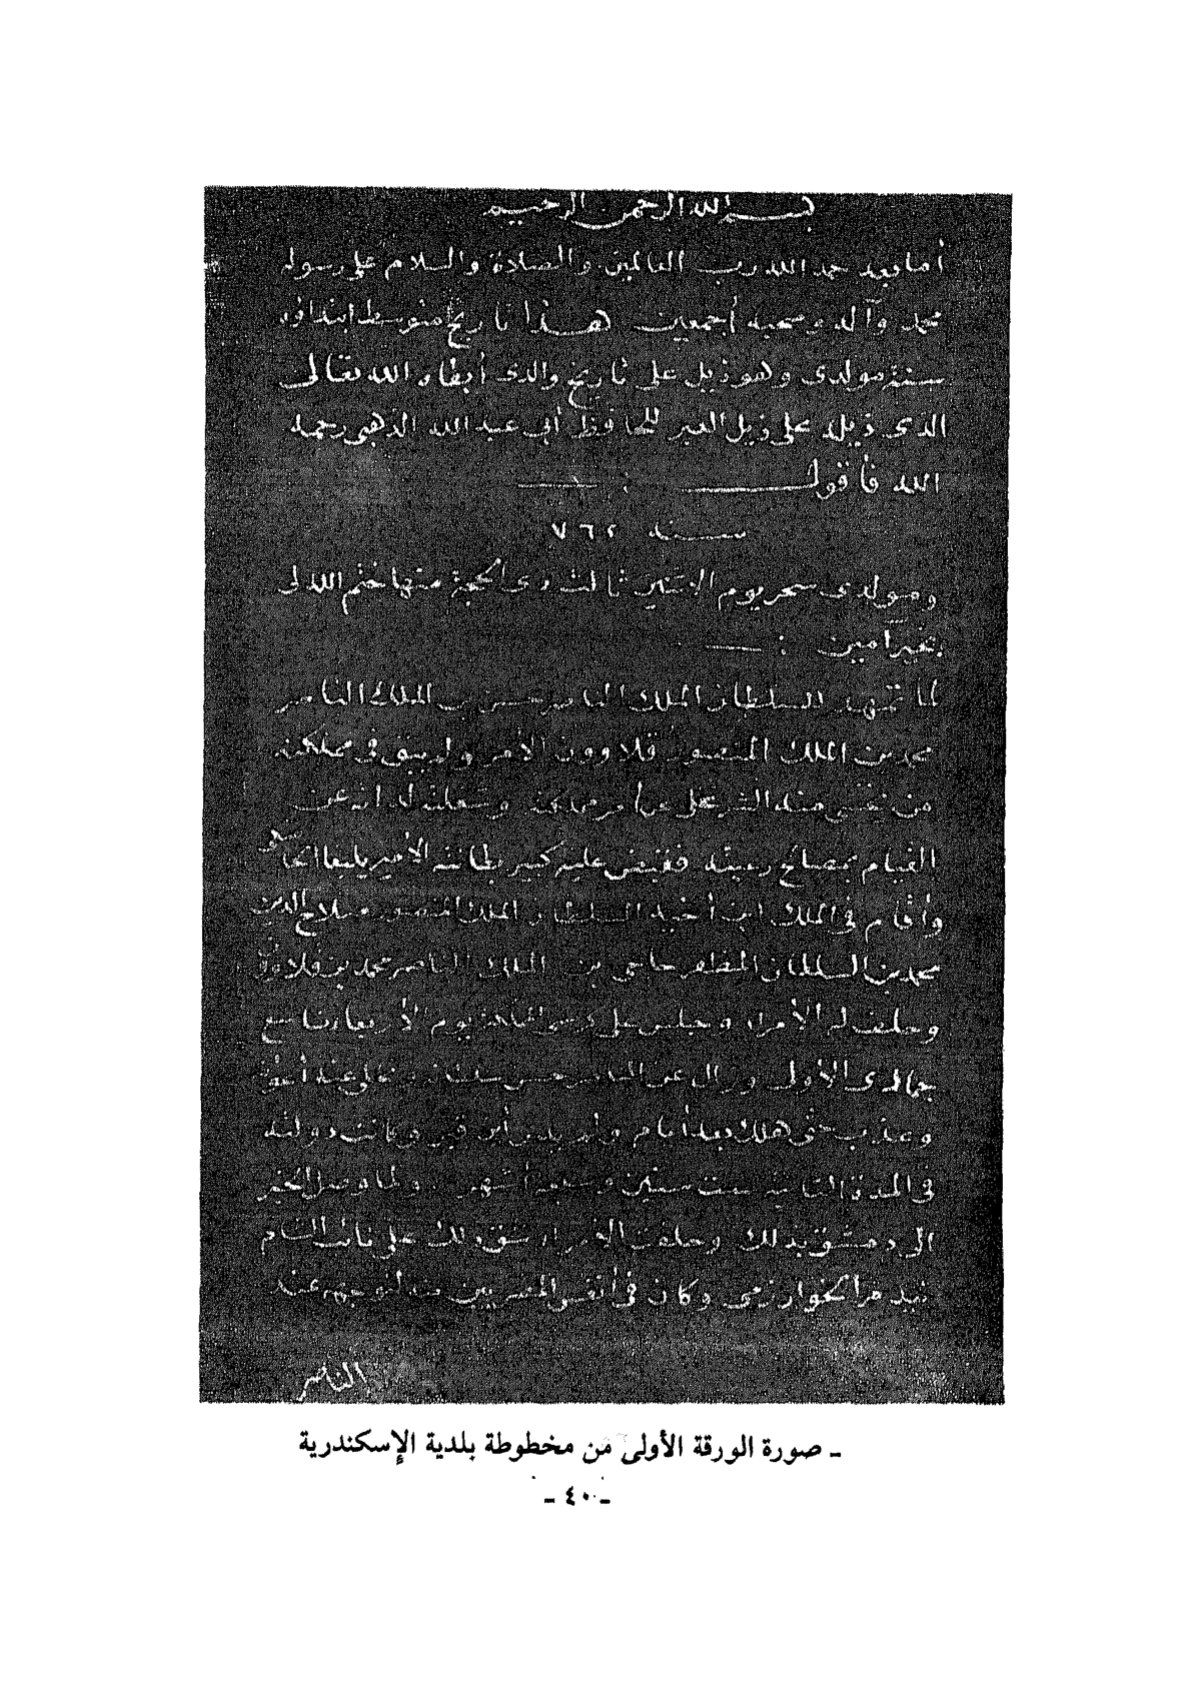 بسم الله الرحمن الرحيم
أما بعد حمد الله رب العالمين والصلاة والسلام على رسوله
محمد وآله وصحبه أجمعين هذا تاريخ متوسط ابتداؤه
سنة مولدى وهو ذيل على تاريخ والدى أبقاه الله تعالى
الذى ذيله على ذيل العبر للحافظ أبى عبد الله الذهبى رحمه
الله فأقول :
سنة ٧٦٢
ومولدى سحر يوم الاثنين ثالث ذى الحجة منها ختم الله لى
بخير آمين :
لما تمهد للسلطان الملك الناصر حسن بن الملك الناصر
محمد بن الملك المنصور قلاوون الأمر ولم يبق فى مملكته
من يخشى منه الشر على
القيام بمصالح رعيته فقبض عليه كبير بطانته الأمير يلبغا
وأقام فى الملك ابن أخيه السلطان الملك المنصور صلاح الدين
محمد بن السلطان المظفر حاجى بن الملك الناصر محمد بن قلاوون
وحلف له الأمراء وجلس على يوم الأربعاء تاسع
جمادى الأولى وزال عن الناصر حسن
وعذب حتى هلك بعد أيام ولم يدر أين قبر وكانت دولته
فى المدة الثانية ست سنين وسبعة أشهر ولما وصل الخبر
الى دمشق بذلك وحلفت الأمراء شق ذلك على نائب الشام
بيدمر الخوارزمى وكان فى أنفس المصريين منه لتوجهه عند
الناصر
ـ صورة الورقة الأولى من مخطوطة بلدية الإسكندرية
ـ ٤٠ ـ